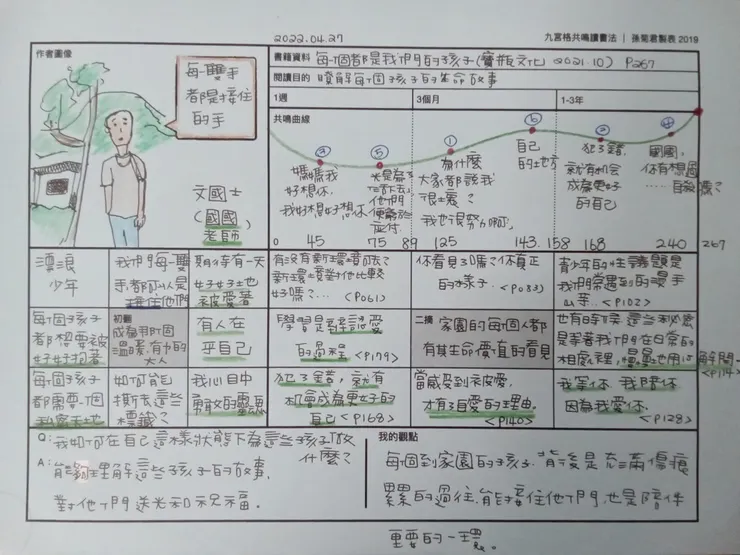 2022.04.27
九宮格共鳴讀書法 | 孫菊君製表 2019
作者圖像
每一雙手
都是接住
的手
文國士
(國國
老師)
書籍資料 每個都是我們的孩子(寶瓶文化 2021.10) P267
閱讀目的 瞭解每個孩子的生命故事
1週
3個月
1-3年
共鳴曲線
③
媽媽我
好想你,
我好想好想你
⑤
①
為什麼
大家都說我
很壞?
我也很努力啊,
⑥
自己
的地方
②
犯了錯,
就有機會
成為更好
的自己
④
國國,
你有想過
自殺嗎?
0 45 75 89 125 143. 158 168 240 267
漂浪
少年
我們每一雙
手都可以是
接住他們
期待有一天
好好地
被愛著
有沒有新環境可去?
新環境對他比較
好嗎?… <P061>
你看見了嗎?你真正
的樣子. <P083>
青少年的性議題是
我們常遇到的燙手
山芋.. <P102>
每個孩子
都想要被
好好抱著
初觀
成為那個
溫暖、有力的
大人
有人在
乎自己
學習是
的過程 <P179>
二摘 家園的每個人都
有其生命價值的看見
也有時候這些秘密
是等著我們在日常的
相處裡,
<P114>
每個孩子
都需要一個
私密天地
如何能
撕去這些
標識?
我心目中
勇敢的靈魂
犯了錯,就有
機會成為更好的
自己 <P168>
當感受到被愛,
才有自愛的理由.
<P140>
我等你、我陪你
因為我愛你.
<P128>
Q: 我如何在自己這樣狀態下為這些孩子做
什麼?
A: 能夠理解這些孩子的故事,
對他們送光和祝福。
我的觀點
每個到家園的孩子.背後是充滿傷痕
累的過往,能接住他們,也是陪伴
重要的一環。